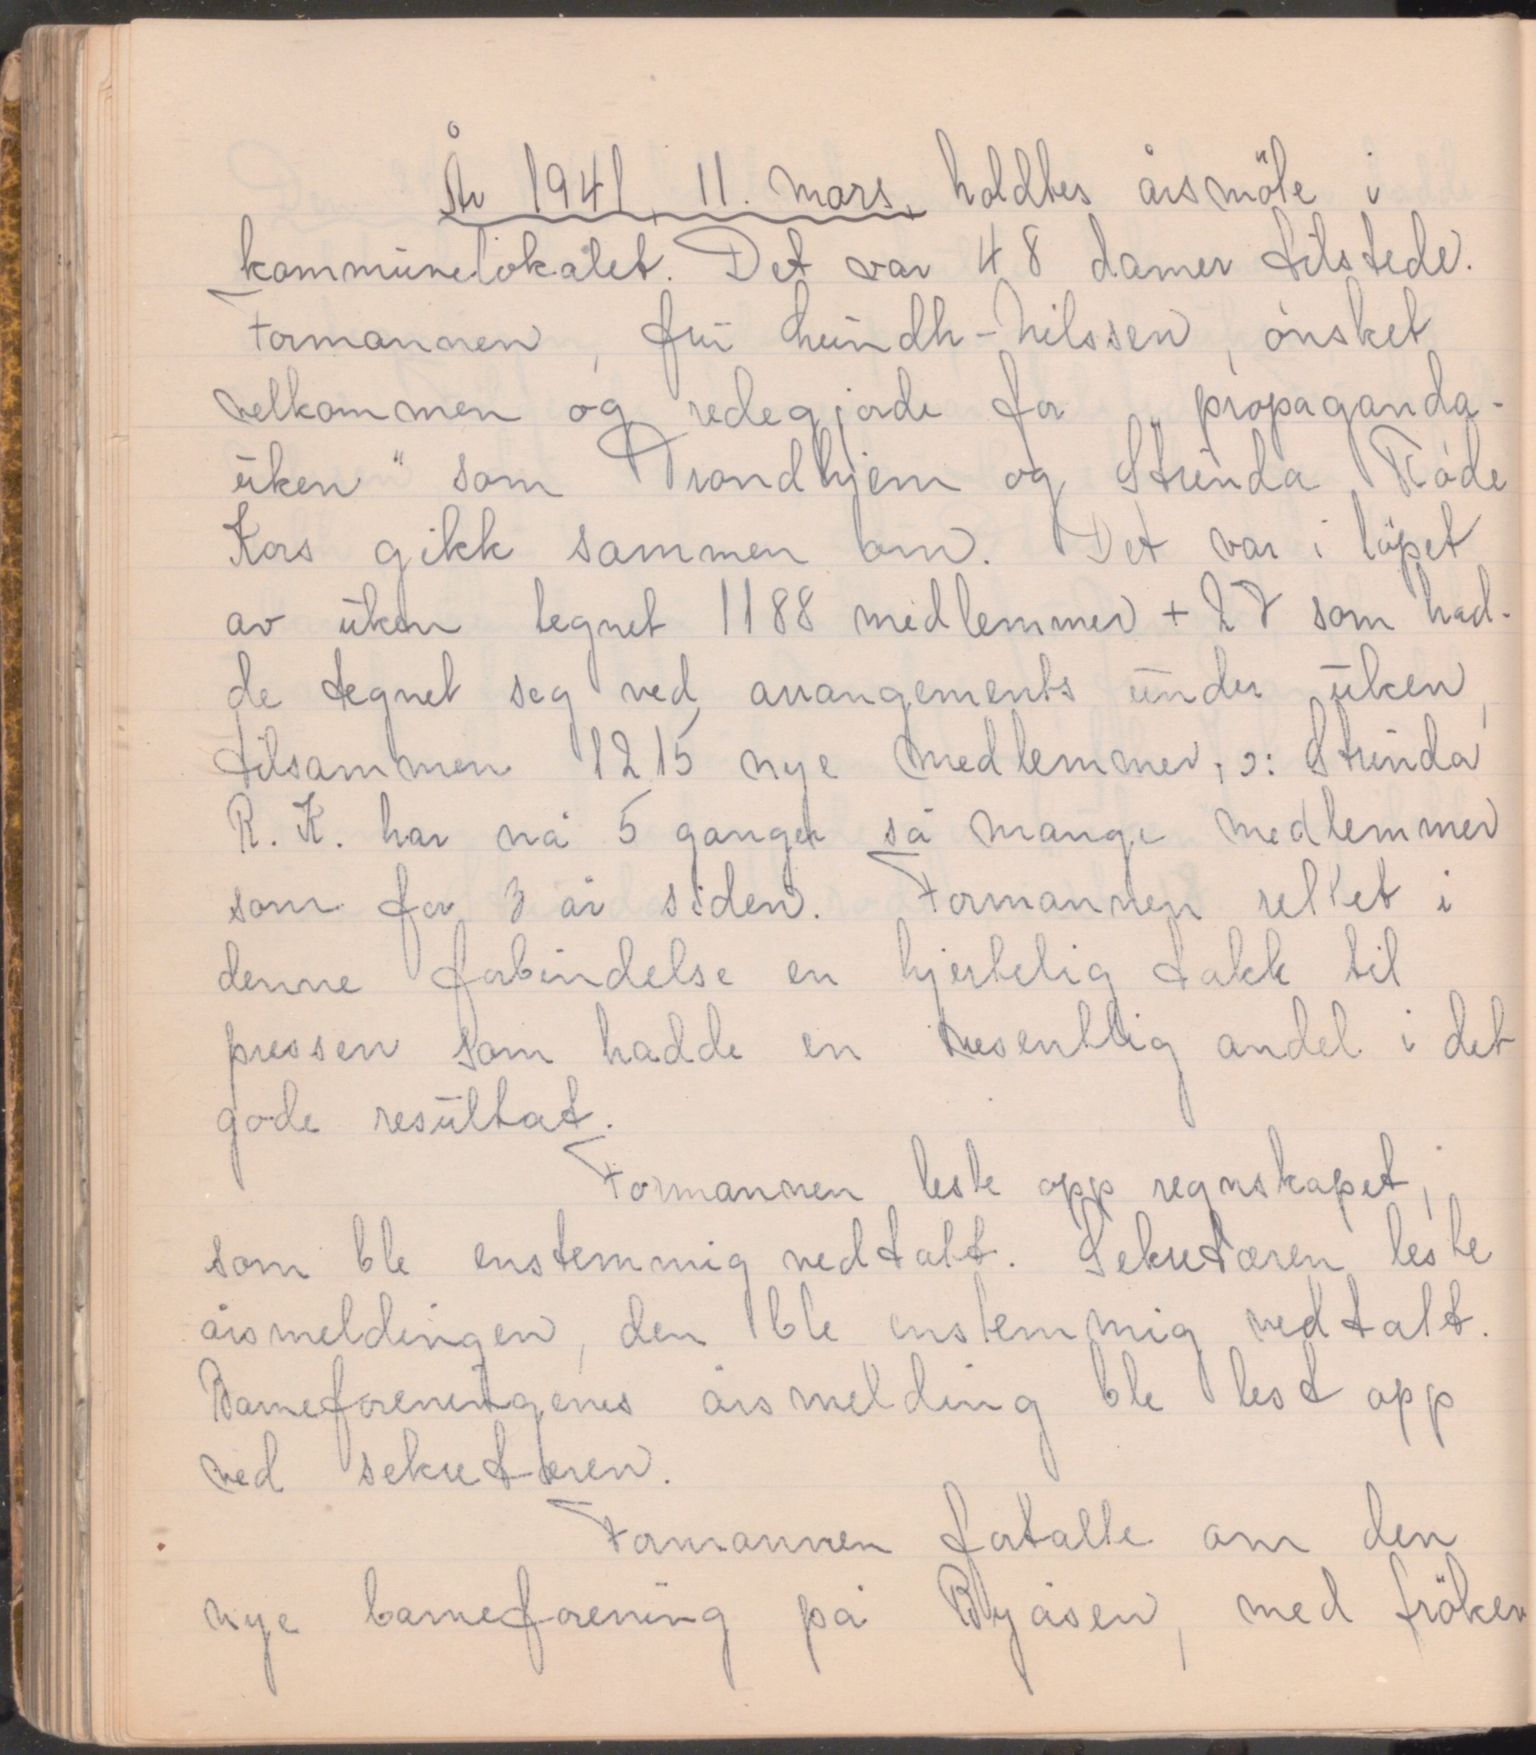 År 1941, 11. mars, holdtes årsmöte i
kommunelokalet. Det var 48 damer tilstede.
Formannen, fru Lundh-Nilssen, ønsket
velkommen og redegjorde for „propaganda-
uken" som Trondhjem og Strinda Röde
Kors gikk sammen om. Det var i löpet
av uken tegnet 1188 medlemmer + 27 som had-
de tegnet seg ved arrangements under uken,
tilsammen 1215 nye medlemmer, ɔ: Strinda
R. K. har nå 5 ganger så mange medlemmer
som for 3 år siden. Formannen rettet i
denne forbindelse en hjertelig takk til
pressen som hadde en vesentlig andel i det
gode resultat.
Formannen leste opp regnskapet,
som ble enstemmig vedtatt. Sekretæren leste
årsmeldingen, den ble enstemmig vedtatt.
Barneforeningenes årsmelding ble lest opp
ved sekretæren.
Formannen fortalte om den
nye barneforening på Byåsen, med fröken